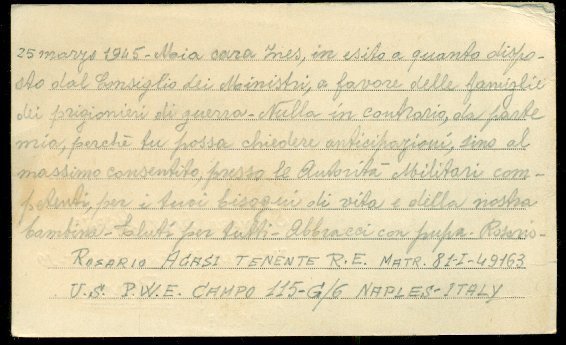 25 marzo 1945 - Mia cara Ines, in esito a quanto dispo-
sto dal Consiglio dei Ministri, a favore delle famiglie
dei prigionieri di guerra - Nulla in contrario, da parte
mia, perchè tu possa chiedere anticipazioni, fino al
massimo consentito, presso le Autorità Militari com-
petenti, per i tuoi bisogni di vita e della nostra
bambina - Saluti per tutti - Abbracci con pupa. Rosario -
ROSARIO AGASI TENENTE R.E. MATR. 81-I-49163
U.S. P.W.E. CAMPO 115-G/6 NAPLES-ITALY